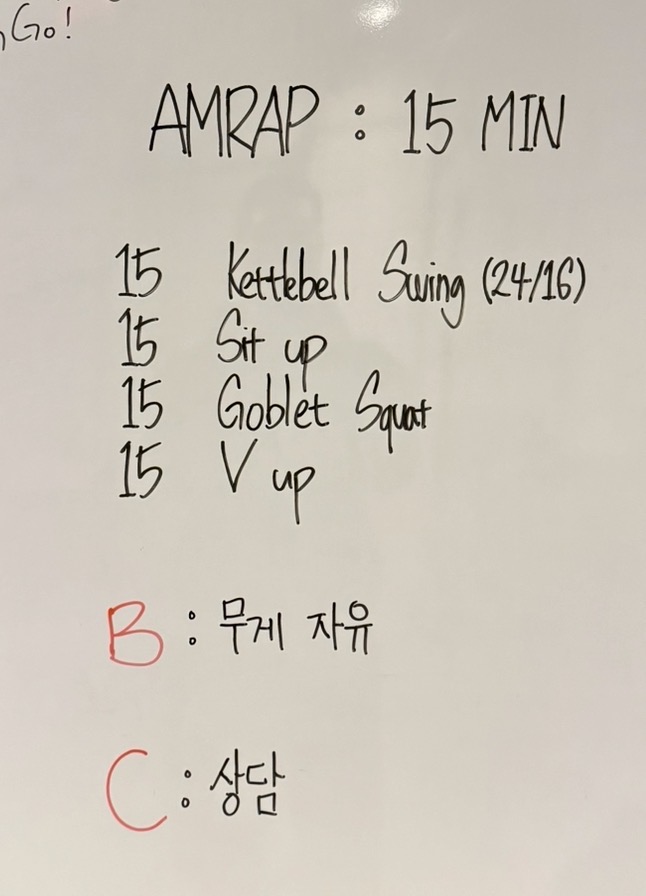 Go!
AMRAP : 15 MIN
15 Kettlebell Swing (24/16)
15 Sit up
15 Goblet Squat
15 V up
B : 무게 자유
C : 상담